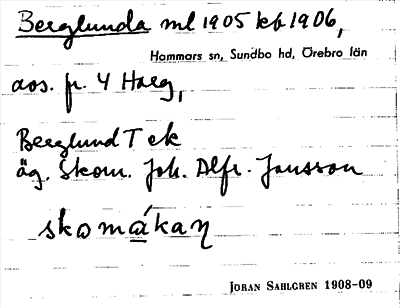 Berglunda ml 1905 kb 1906,
Hammars sn, Sundbo hd, Örebro län
avs. fr. Y Haeg,
Berglund T ek
äg. Skom. Joh. Alfr. Jansson
skomákaṇ
JÖRAN SAHLGREN 1908-09